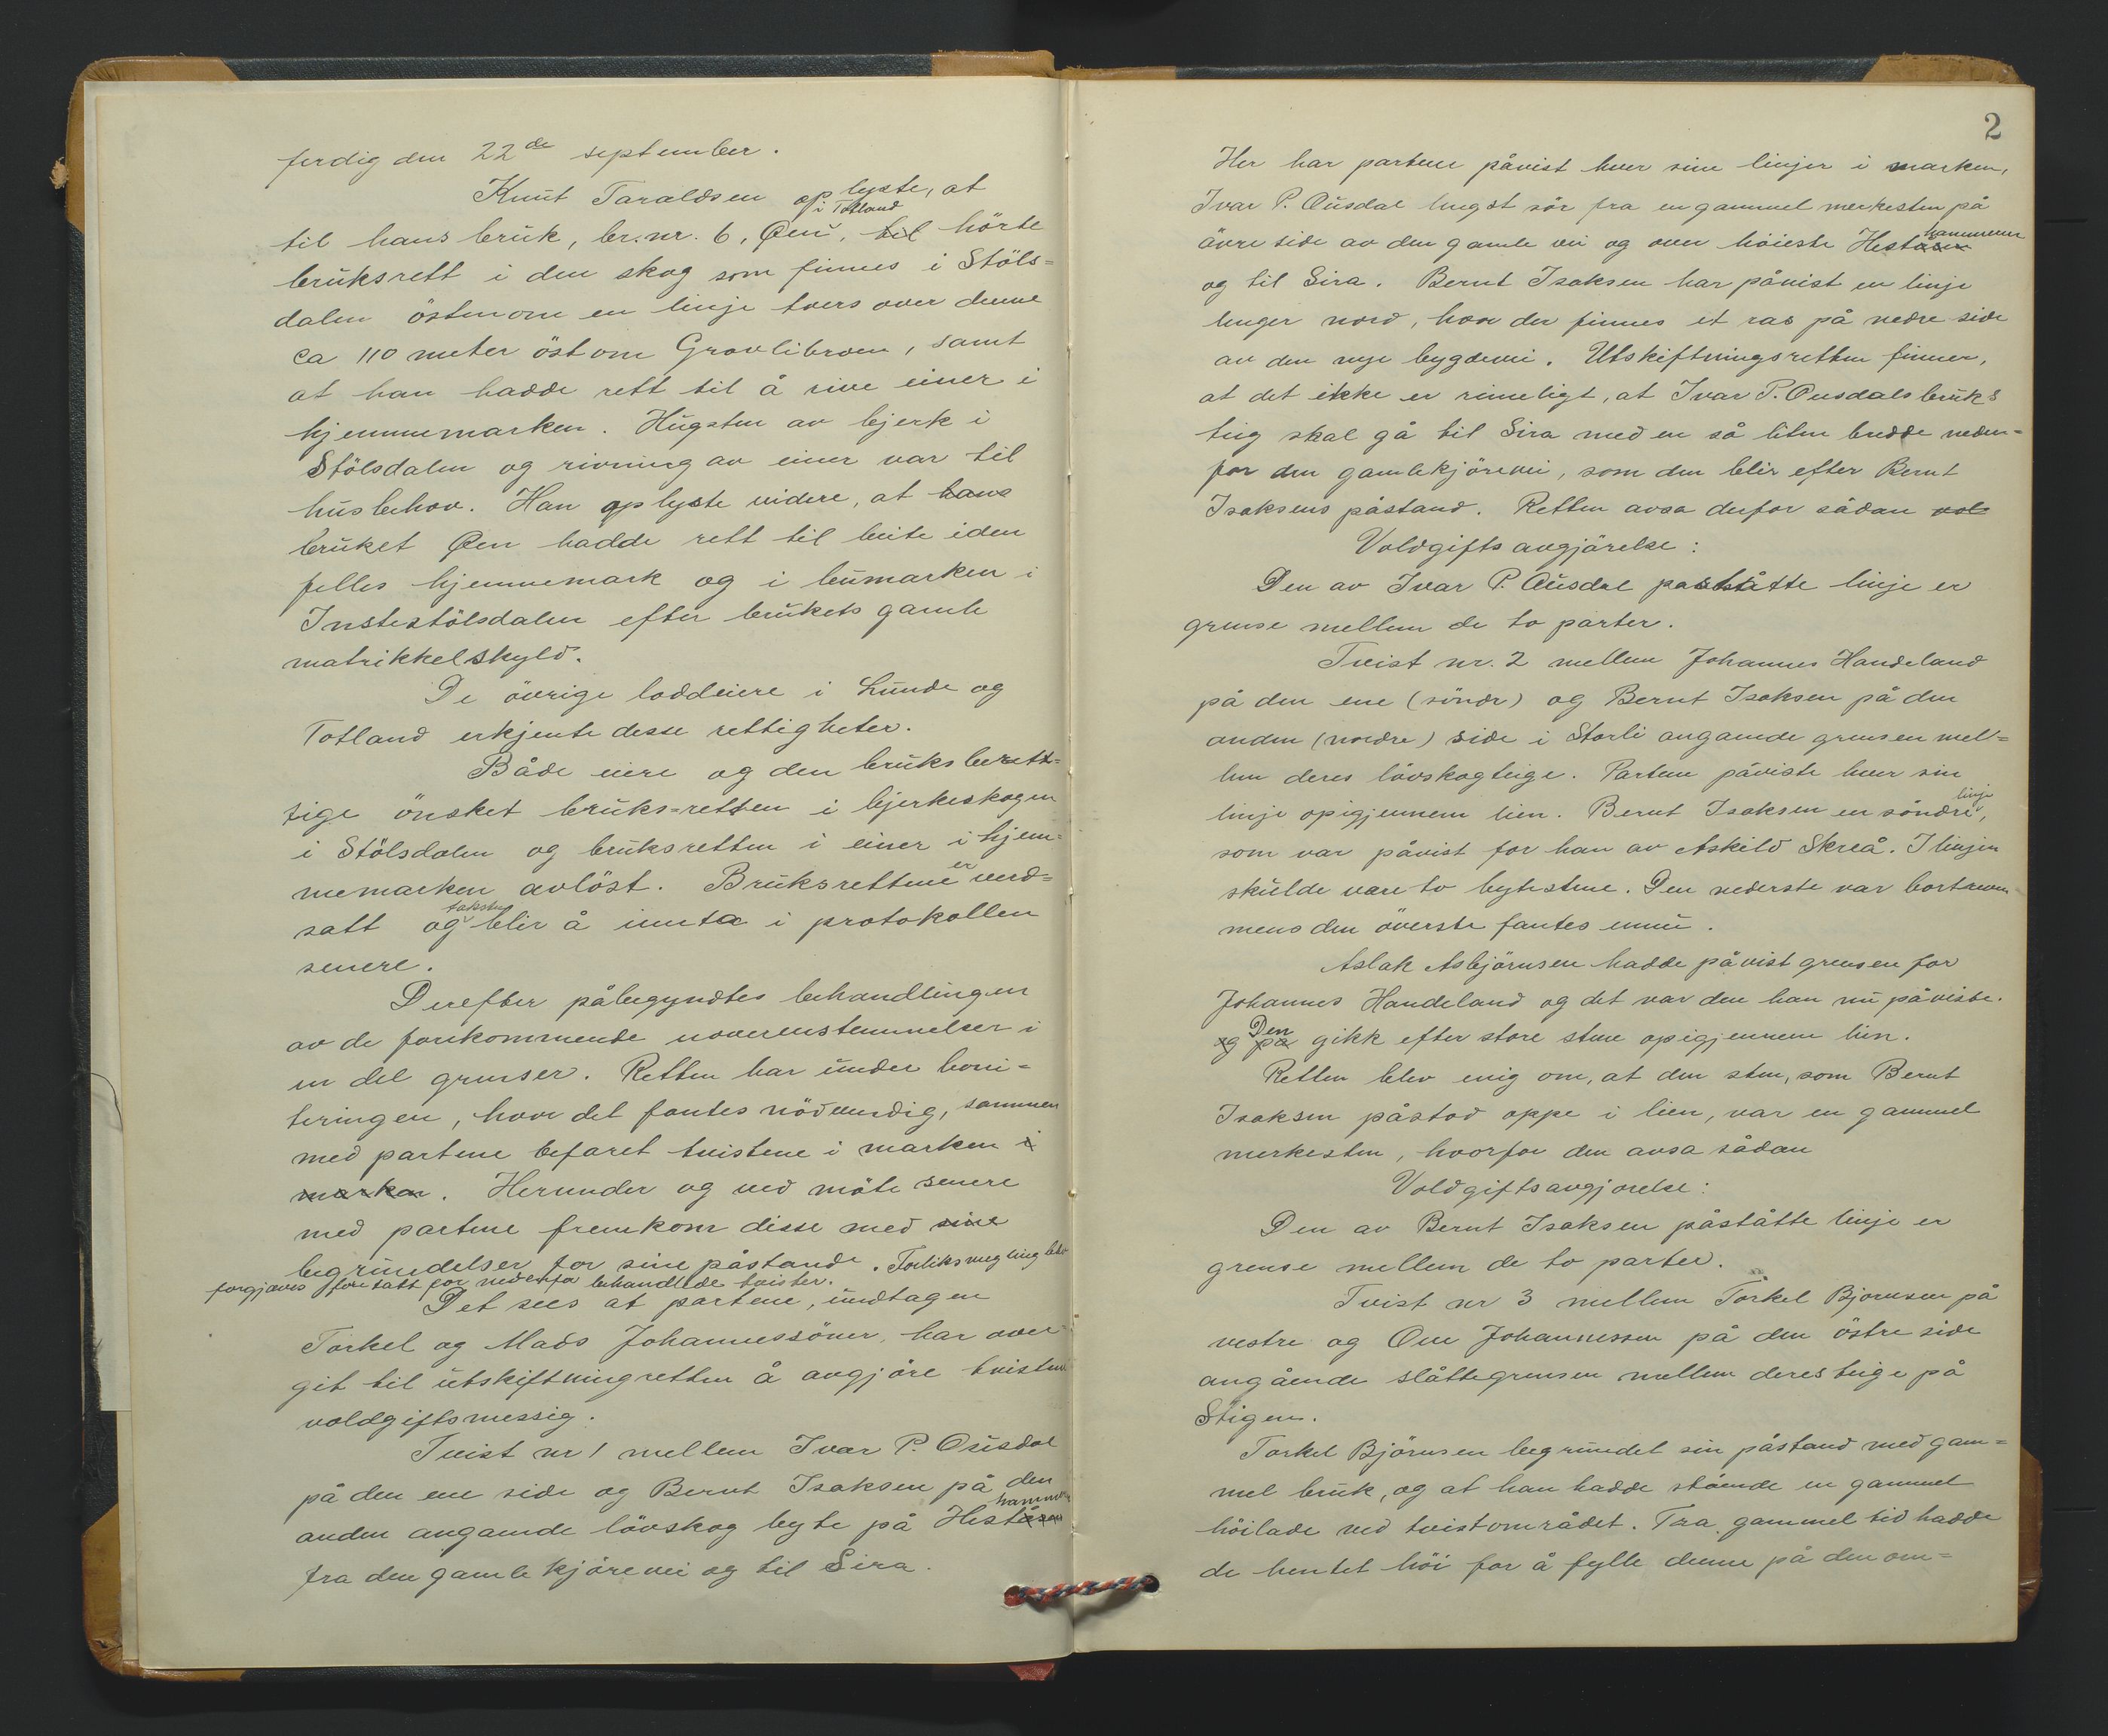 ferdig den 22de september.
Knut Taraldsen oplyste, at
i Totland
til hans bruk, br.nr. 6, Øen, til hörte
bruksrett i den skog som finnes i Stöls=
dalen östenom en linje tvers over denne
ca 110 meter öst om Gravlibroen, samt
at han hadde rett til å rive einer i
hjemmemarken. Hugsten av bjerk i
Stölsdalen og rivning av einer var til
husbehov. Han oplyste videre, at hans
bruket Øen hadde rett til beite i den
felles hjemmemark og i bumarken i
Instestölsdalen efter brukets gamle
matrikkelskyld.
De övrige loddeiere i Lunde og
Totland erkjente desse rettigheter.
Både eiere og den bruksberett=
tige önsket bruks=retten i bjerkeskogen
i Stölsdalen og bruksretten i einer i hjem=
memarken avlöst. Bruksrettene er verd=
satt og taksten blir å innta i protokollen
senere.
Derefter påbegyndtes behandlingen
av de forekommende uoverenstemmelser i
en del grenser. Retten har under boni=
teringen, hvor det fantes nödvendig, sammen
med partene befaret tvistene i marken i
marken. Herunder og ved möte senere
med partene fremkom disse med sine
begrundelser for sine påstande. Forliksmegling blev
forgjæves foretatt for nedenfor behandlede tvister.
Det sees at partene, undtagen
Torkel og Mads Johannessöner, har over=
git til utskiftningretten å avgjöre tvistene
voldgiftsmessig.
Tvist nr 1 mellem Ivar P. Ousdal
på den ene side og Bernt Isaksen på den
hammeren
anden angaende lövskog byte på Heståsen
fra den gamle kjörevei og til Sira.
2
Her har partene påvist hver sine linjer i marken,
Ivar P. Ousdal lengst sör fra en gammel merkesten på
övre side av den gamle vei og over höieste Heståsen hammeren
og til Sira. Bernt Isaksen har påvist en linje
lenger nord, hvor der finnes et ras på nedre side
av den nye bygdevei. Utskiftningsretten finner,
at det ikke er rimeligt, at Ivar P. Ousdals bruks
teig skal gå til Sira med en så liten bredde neden=
for den gamle kjörevei, som den blir efter Bernt
Isaksens påstand. Retten avsa derfor sådan vol=
Voldgifts avgjörelse:
Den av Ivar P. Ousdal påståtte linje er
grense mellem de to parter.
Tvist nr. 2 mellem Johannes Handeland
på den ene (söndr) og Bernt Isaksen på den
anden (nordre) side i Storli angaende grensen mel=
lem deres lövskogteige. Partene påviste hver sin
linje opigjennem lien. Bernt Isaksen en söndre linje,
som var påvist for han av Askild Skreå. I linjen
skulde være to bytestene. Den nederste var bortrevet
mens den överste fantes ennu.
Aslak Asbjörnsen hadde påvist grensen for
Johannes Handeland og det var den han nu påviste.
og på Den gikk efter store stene opigjennem lien.
Retten blev enig om, at den sten, som Bernt
Isaksen påstod oppe i lien, var en gammel
merkesten, hvorfor den avsa sådan
Voldgiftsavgjorelse:
Den av Bernt Isaksen påståtte linje er
grense mellem de to parter.
Tvist nr 3 mellem Torkel Bjornsen på
vestre og Ove Johannessen på den östre side
angående slåttegrensen mellem deres teige på
Stigen.
Torkel Björnsen begrundet sin påstand med gam=
mel bruk, og at han hadde stående en gammel
höilade ved tvistområdet. Fra gammel tid hadde
de hentet höi for å fylle denne på den om=